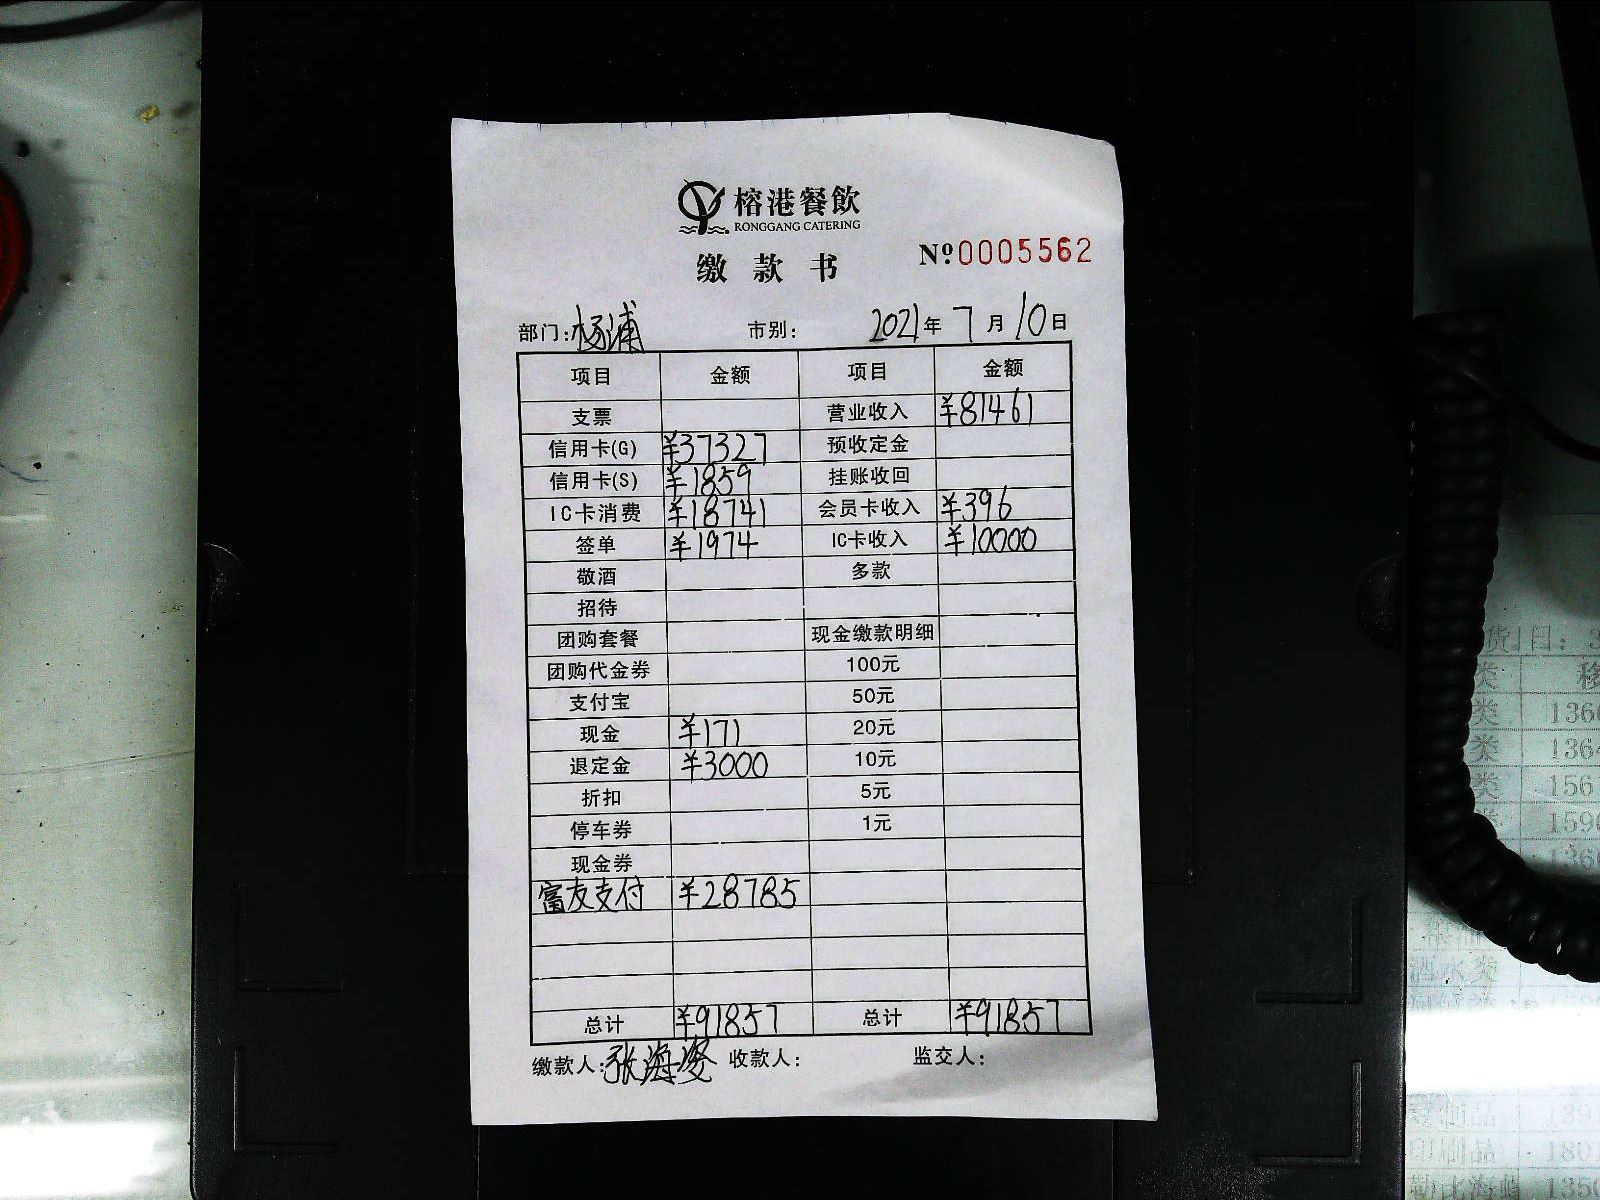 榕港餐飲
RONGGANG CATERING
缴款书
Nº0005562
部门:杨浦 市别: 2021年7月10日
项目 金额 项目 金额
支票 营业收入 ¥81461
信用卡(G) ¥37327 预收定金
信用卡(S) ¥1859 挂账收回
IC卡消费 ¥18741 会员卡收入 ¥396
签单 ¥1974 IC卡收入 ¥10000
敬酒 多款
招待
团购套餐 现金缴款明细
团购代金券 100元
支付宝 50元
现金 ¥171 20元
退定金 ¥3000 10元
折扣 5元
停车券 1元
现金券
富友支付 ¥28785
总计 ¥91857 总计 ¥91857
缴款人:张海 收款人: 监交人: